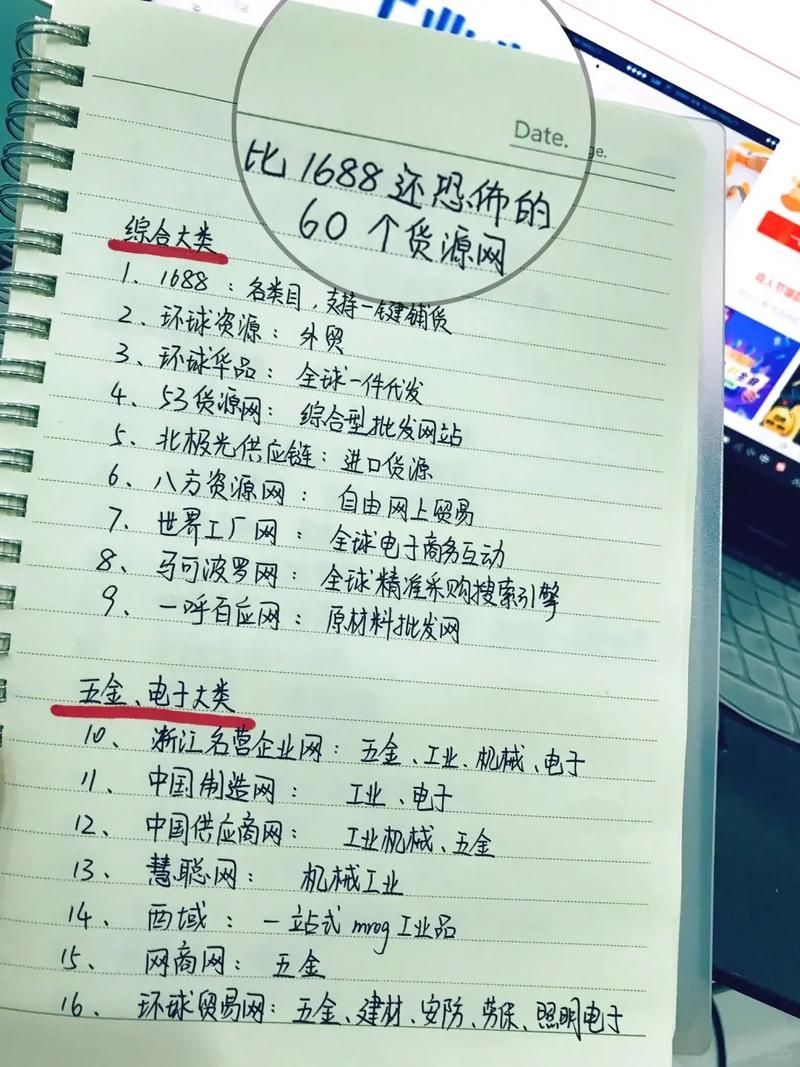 Date.
ge.
比1688还恐怖的
60个货源网
综合大类
1、1688：各类目，支持一键铺货
2、环球资源：外贸
3、环球华品：全球一件代发
4、53货源网：综合型批发网站
5、北极光供应链：进口货源
6、八方资源网：自由网上贸易
7、世界工厂网：全球电子商务互动
8、马可波罗网：全球精准采购搜索引擎
9、一呼百应网：原材料批发网
五金、电子大类
10、浙江名营企业网：五金、工业、机械、电子
11、中国制造网：工业、电子
12、中国供应商网：工业机械、五金
13、慧聪网：机械工业
14、西域：一站式mrog工业品
15、网商网：五金
16、环球贸易网：五金、建材、安防、劳保、照明电子